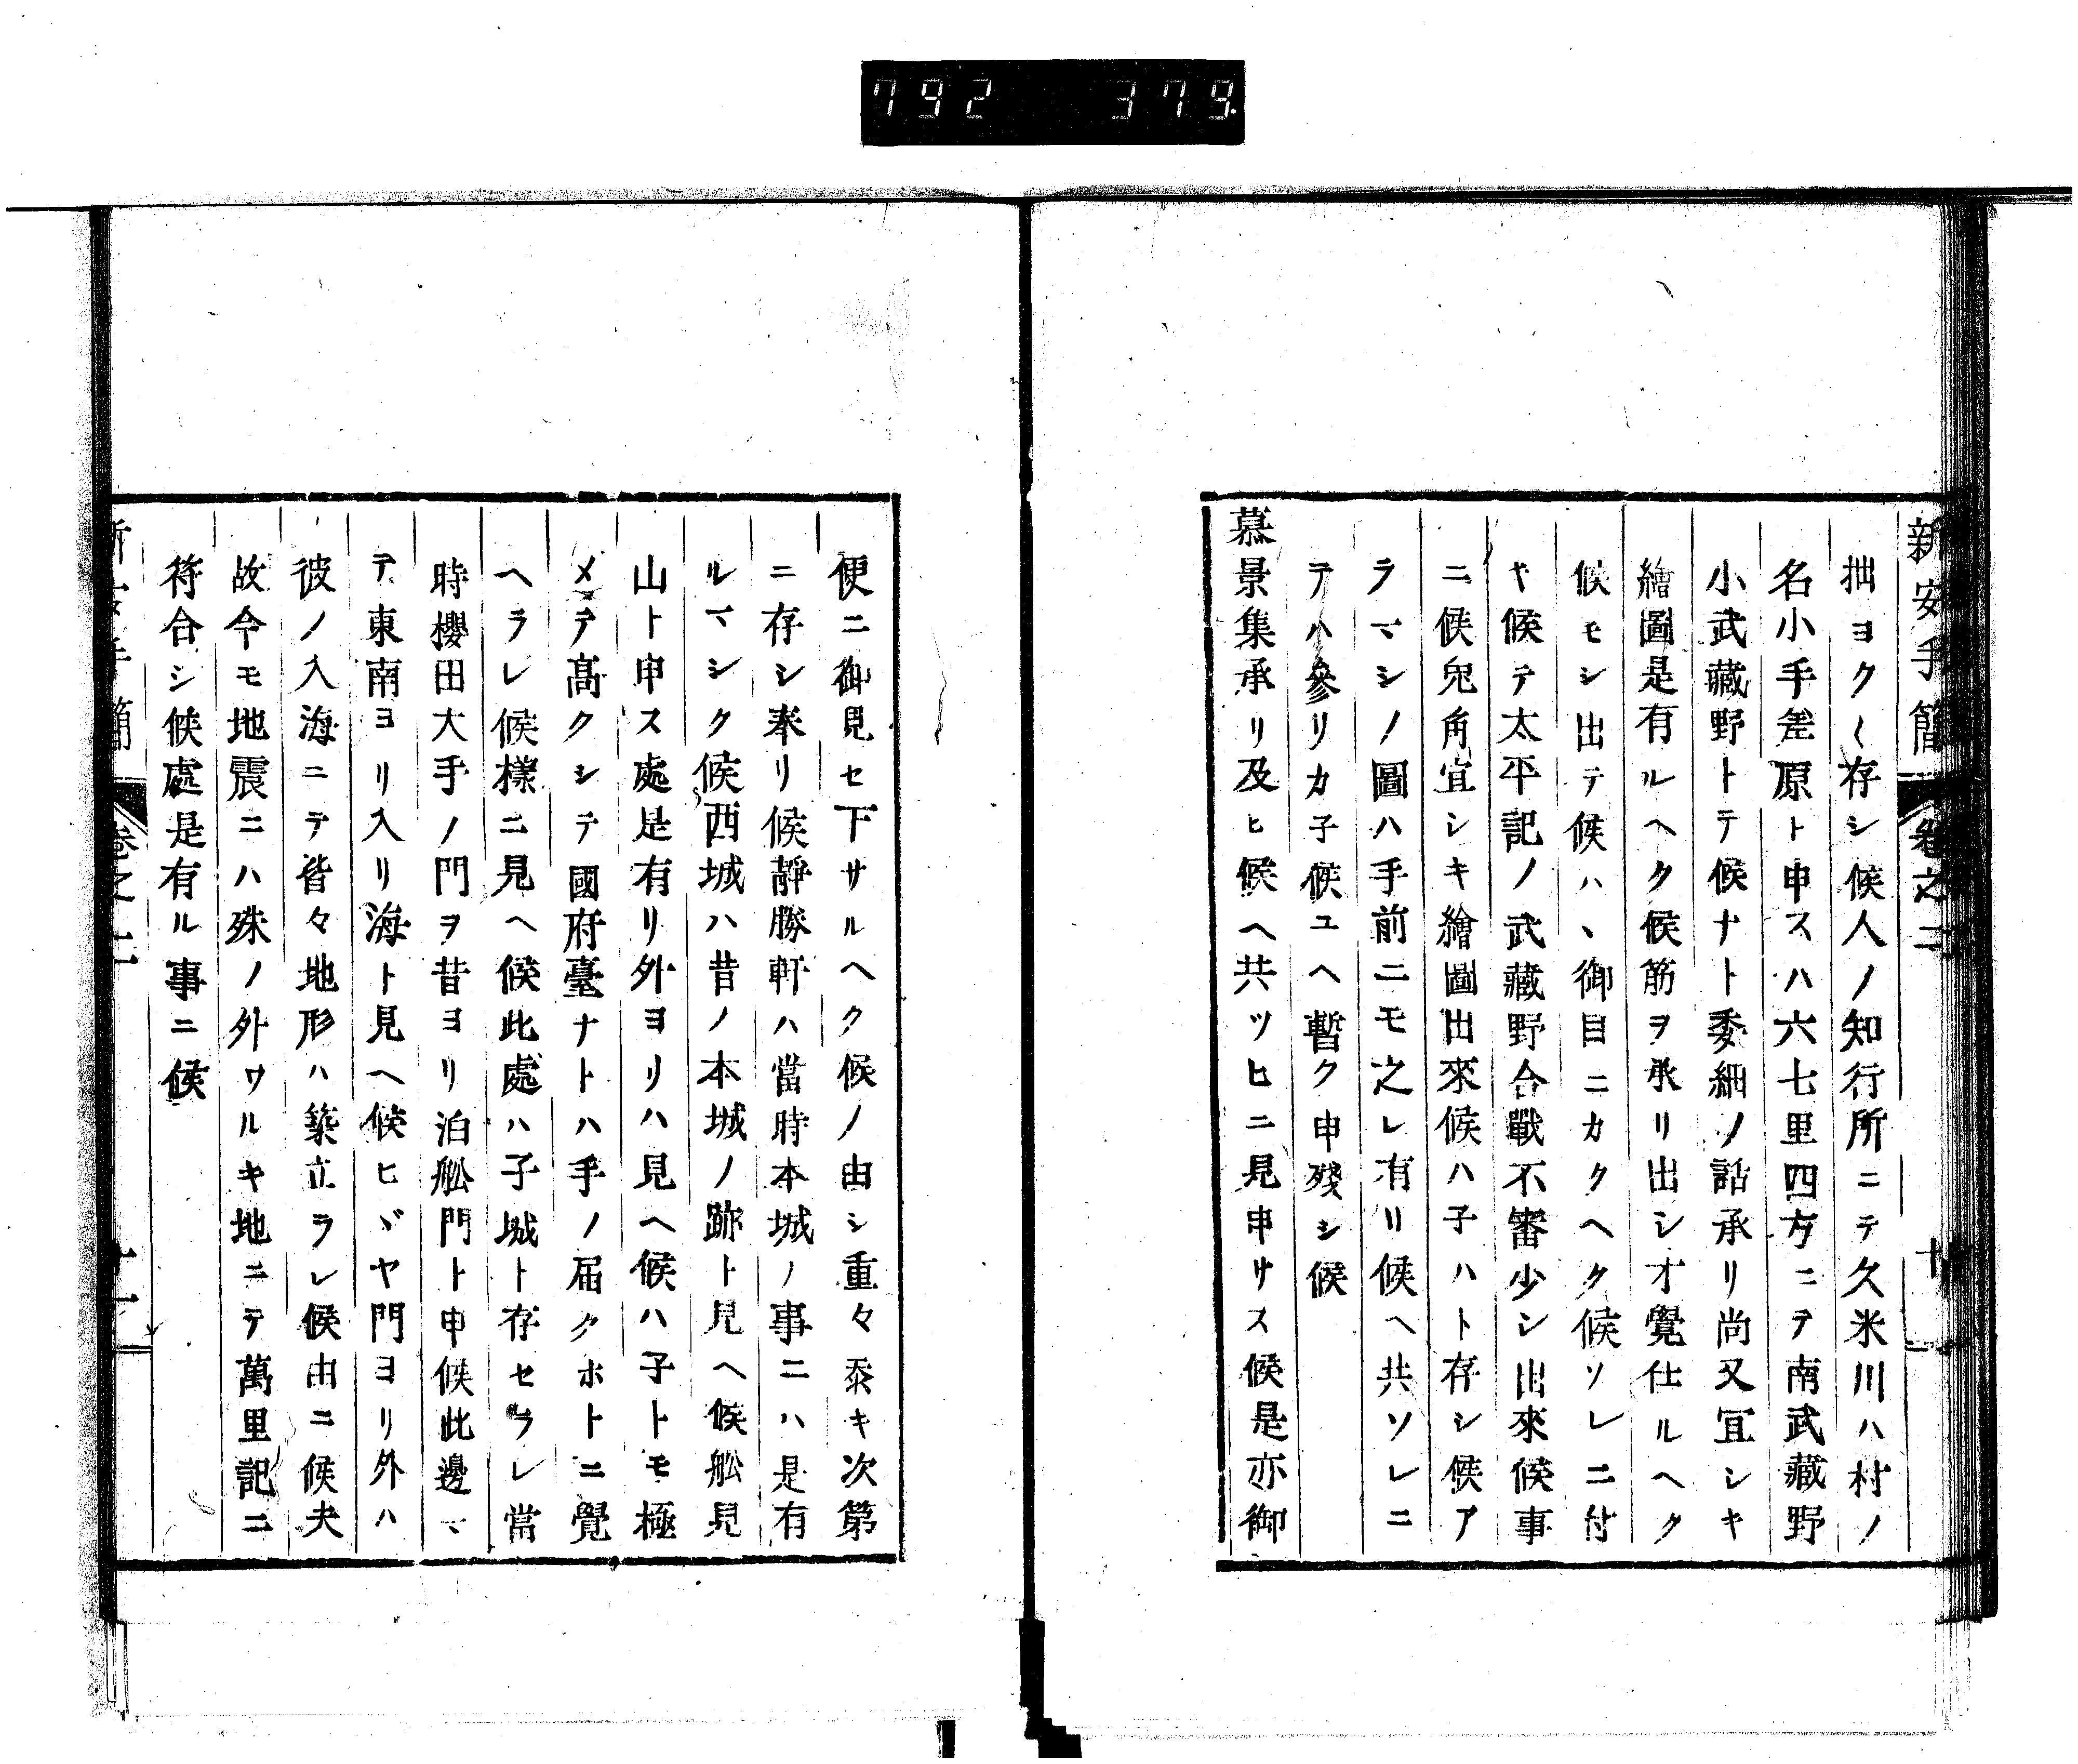 792 379.
新安手簡 卷之二 廿
拙ヨク〱存シ候人ノ知行所ニテ久米川ハ村ノ
名小手差原ト申スハ六七里四方ニテ南武藏野
小武藏野トテ候ナト委細ノ話承リ尚又宜シキ
繪圖是有ルヘク候筋ヲ承リ出シ才覺仕ルヘク
候モシ出テ候ハヽ御目ニカクヘク候ソレニ付
キ候テ太平記ノ武藏野合戰不審少シ出來候事
ニ候兒角宜シキ繪圖出來候ハ子ハト存シ候ア
ラマシノ圖ハ手前ニモ之レ有リ候ヘ共ソレニ
テハ參リカ子候ユヘ暫ク申殘シ候
慕景集承リ及ヒ候ヘ共ツヒニ見申サス候是亦御
便ニ御見セ下サルヘク候ノ由シ重々忝キ次第
ニ存シ奉リ候靜勝軒ハ當時本城ノ事ニハ是有
ルマシク候西城ハ昔ノ本城ノ跡ト見ヘ候舩見
山ト申ス處是有リ外ヨリハ見ヘ候ハ子トモ極
メテ高クシテ國府臺ナトハ手ノ届クホトニ覺
ヘラレ候樣ニ見ヘ候此處ハ子城ト存セラレ當
時櫻田大手ノ門ヲ昔ヨリ泊舩門ト申候此邊マ
テ東南ヨリ入リ海ト見ヘ候ヒヾヤ門ヨリ外ハ
彼ノ入海ニテ皆々地形ハ築立ラレ候由ニ候夫
故今モ地震ニハ殊ノ外ワルキ地ニテ萬里記ニ
符合シ候處是有ル事ニ候
新安手簡 卷之二